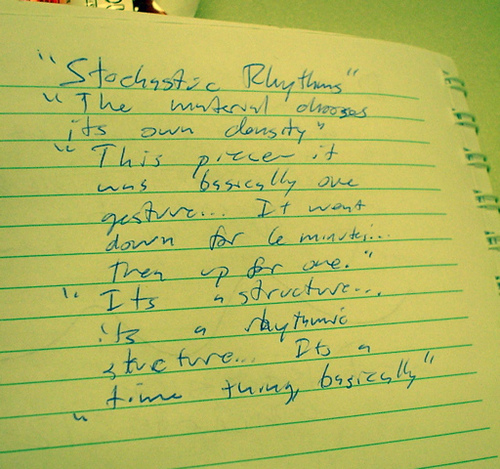 "Stochastic Rhythms"
"The material chooses
its own density"
"This piece it
was basically one
gesture... It went
down for 6 minutes...
then up for one."
"Its a structure...
its a rhythmic
structure... Its a
time thing, basically"
"